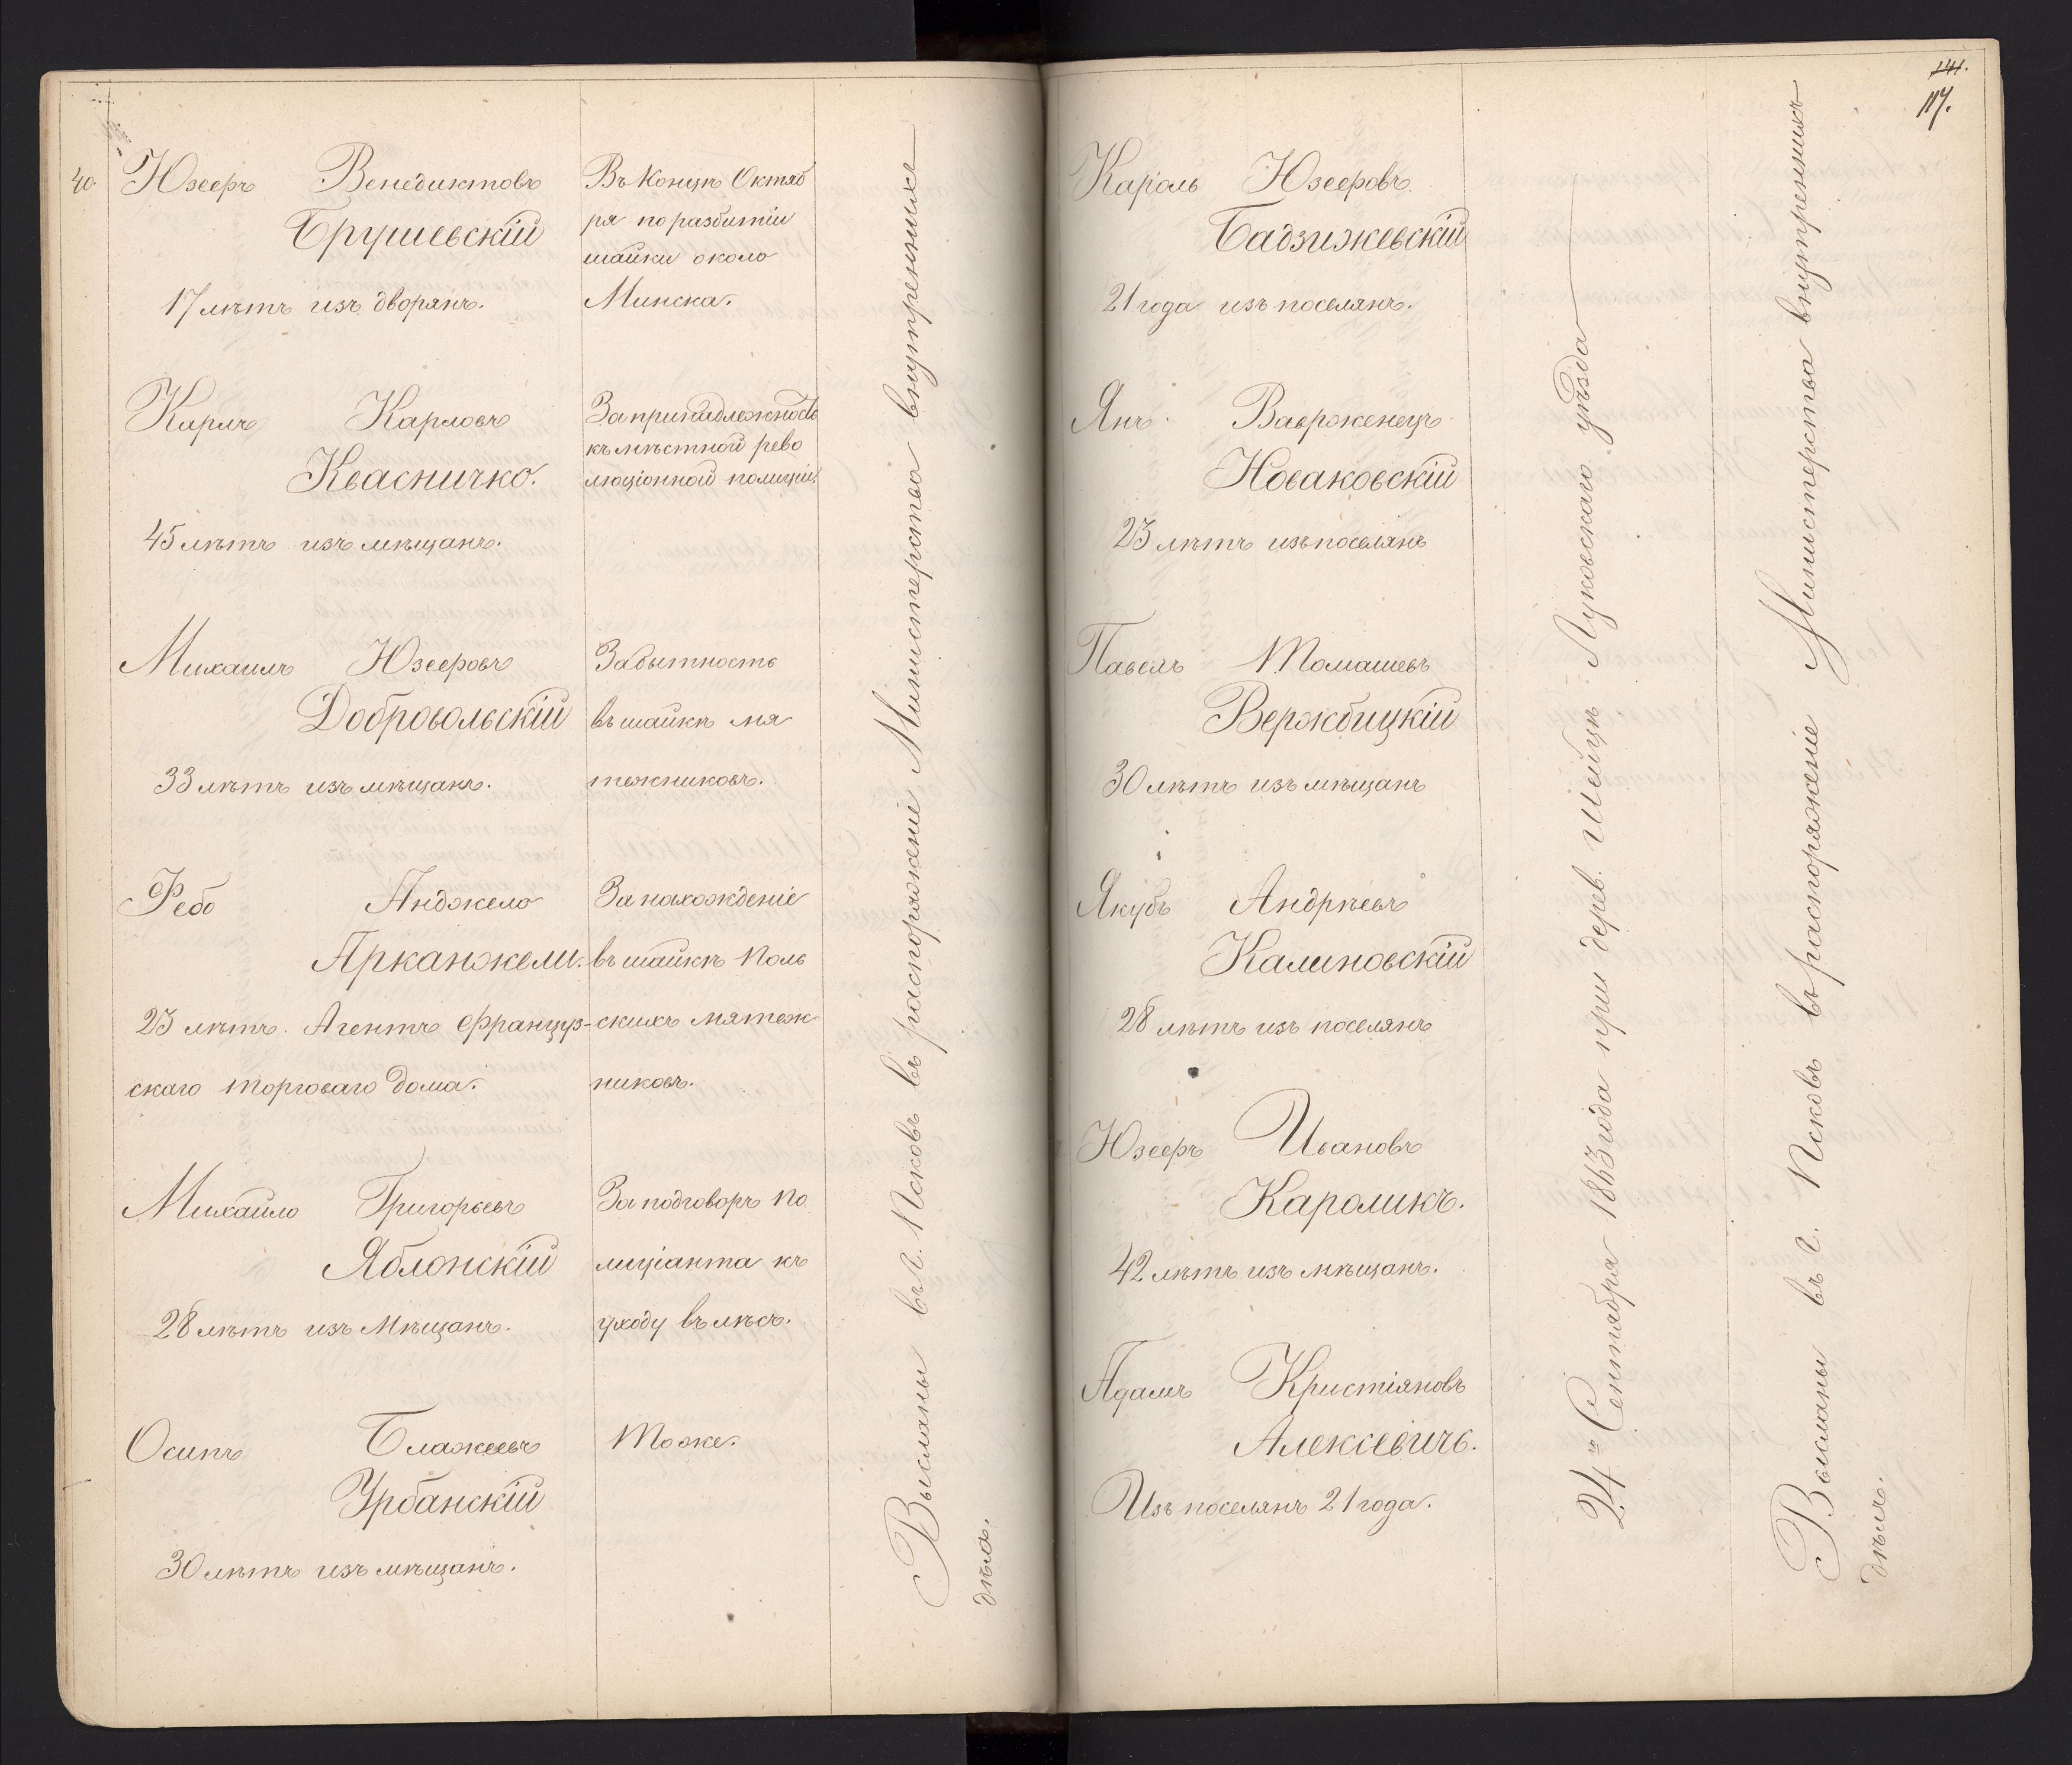 40. Юзефъ Венедиктовъ
Брушевскій
17 лѣтъ изъ дворянъ.
Въ концѣ Октяб
ря по разбитіи
шайки около
Минска.
Карлъ Карловъ
Квасничко.
45 лѣтъ изъ мѣщанъ.
За принадлежность
къ мѣстной рево
люціонной полиціи.
Михаилъ Юзефовъ
Добровольскій
33 лѣтъ изъ мѣщанъ.
За бытность
въ шайкѣ мя
тежниковъ.
Фебо Анджело
Арканжели.
23 лѣтъ. Агентъ Француз-
скаго торговаго дома.
За нахожденіе
въ шайкѣ Поль
скихъ мятеж
никовъ.
Михайло Григорьевъ
Яблонскій
28 лѣтъ изъ мѣщанъ.
За подговоръ по
лиціанта къ
уходу въ лѣсъ.
Осипъ Блажеевъ
Урбанскій
30 лѣтъ изъ мѣщанъ.
Тоже.
Высланы въ г. Псковъ въ распоряженіе Министерства внутреннихъ
дѣлъ.
141.
117.
Кароль Юзефовъ
Бадзижевскій
21 года изъ поселянъ.
Янъ Вавроженецъ
Новаковскій
23 лѣтъ изъ поселянъ
Павелъ Томашевъ
Вержбицкій
30 лѣтъ изъ мѣщанъ
Якубъ Андрѣевъ
Калиновскій
28 лѣтъ изъ поселянъ
Юзефъ Ивановъ
Кароликъ.
42 лѣтъ изъ мѣщанъ.
Адамъ Кристіяновъ
Алексѣвичъ.
Изъ поселянъ 21 года.
24го Сентября 1863 года при дерев. Шейцѣ Луковскаго уѣзда
Высланы въ г. Псковъ въ распоряженіе Министерства внутреннихъ
дѣлъ.